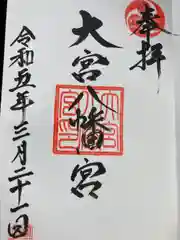 奉拝
大宮八幡宮
令和五年三月二十一日